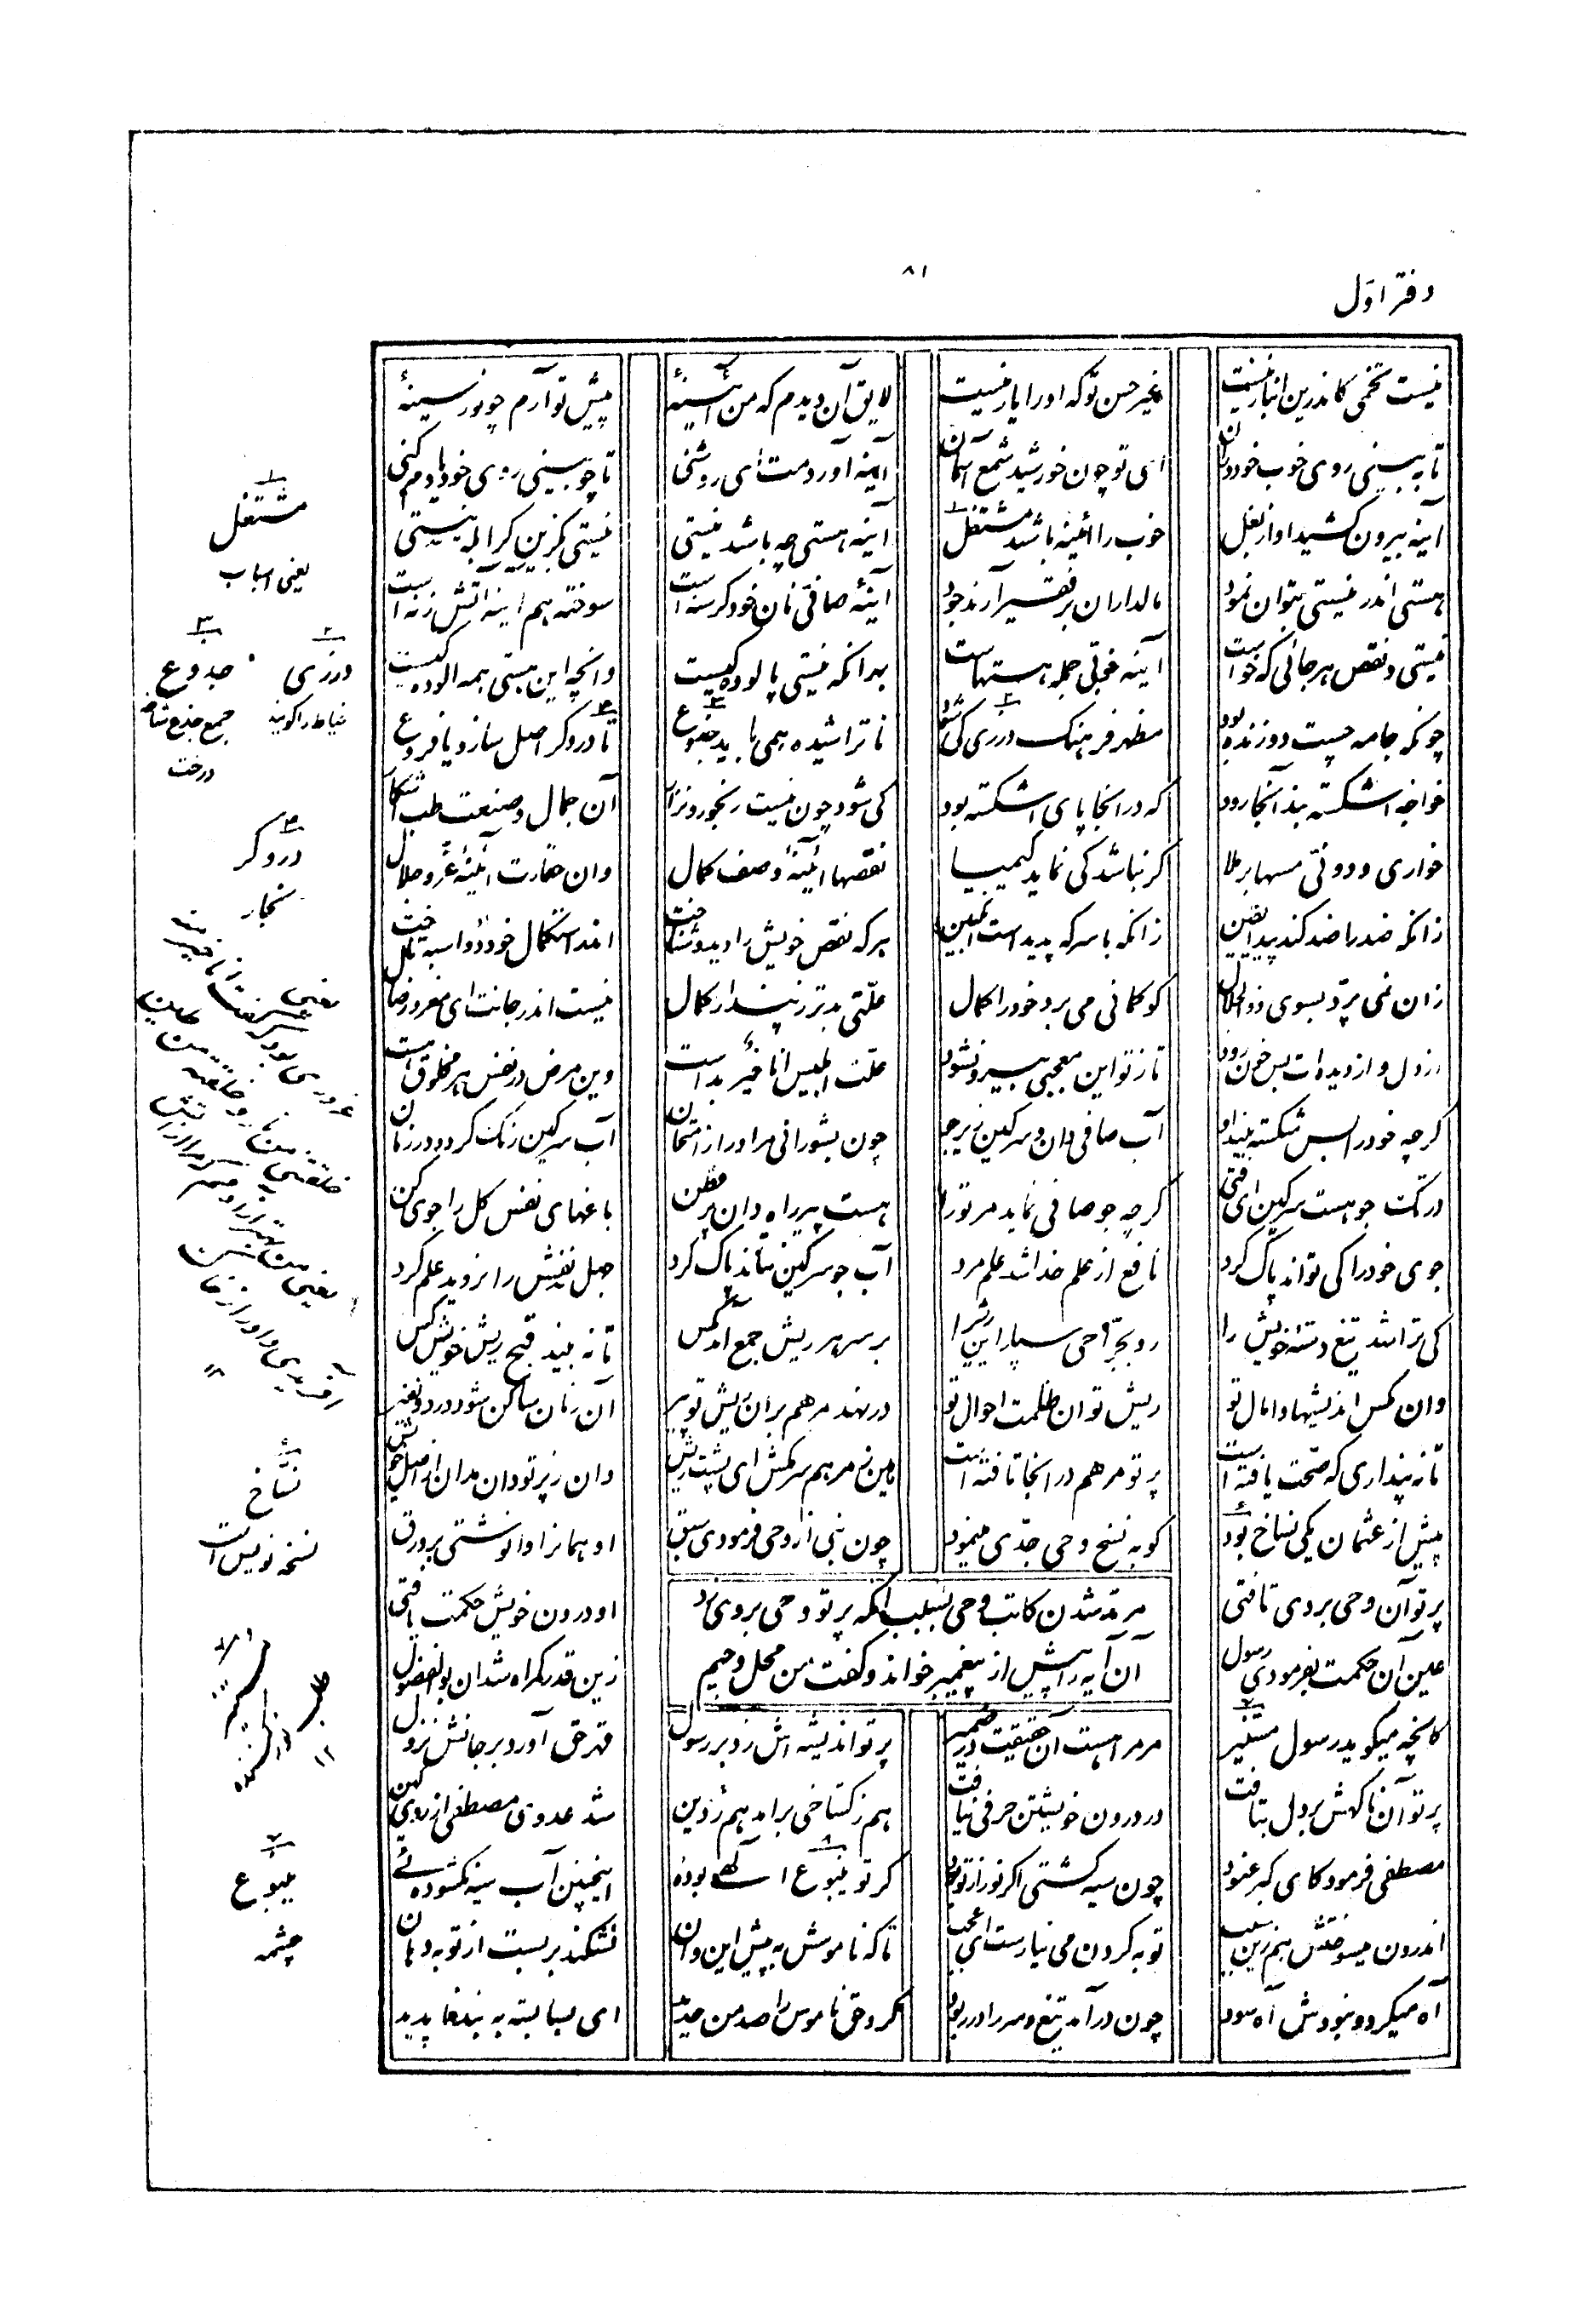 دفتر اوّل
۸۱
نیست تخمی کاندرین انبار نیست غیر حسن تو که او را یار نیست لایق آن دیدم که من آئینهٔ پیش تو آرم چو نور سینهٔ
تا به بینی روی خوب خود در آن ای تو چون خورشید شمع آسمان آینه آوردمت ای روشنی تا چو بینی روی خود یادم کنی
آینه بیرون کشید او از بغل خوب را آئینه باشد مشتغل آینه هستی چه باشد نیستی نیستی بگزین گر ابله نیستی
هستی اندر نیستی بتوان نمود مالداران بر فقیر آرند جود آینهٔ صافی نان خود گرسنه است سوخته هم آینه آتش زنه است
نیستی و نقص هر جائی که خواست آینه خوبّی جمله هستهاست بدانکه نیستی پالوده کیست وانچه این هستی همه آلوده کیست
چونکه جامه چست دوزنده بود مظهر فرهنگ درزی کی شود ناتراشیده همی باید جذوع تا دروگر اصل سازد یا فروع
خواجه اشکسته بند آنجا رود که در آنجا پای اشکسته بود کی شود چون نیست رنجور و نزار آن جمال و صنعت طب آشکار
خواری و دونّی مسها بر ملا گر نباشد کی نماید کیمیا نقصها آئینهٔ وصف کمال وان حقارت آئینهٔ عزّ و جلال
زانکه ضد را ضد کند پیدا یقین زانکه با سرکه پدید است انگبین هرکه نقص خویش را دید و شناخت اندر استکمال خود دو اسبه تاخت
زان نمی پرّد بسوی ذوالجلال کو گمانی می برد خود را کمال علّتی بدتر ز پندار کمال نیست اندر جانت ای مغرور ضال
از دل و از دیده ات بس خون رود تا ز تو این معجبی بیرون شود علّت ابلیس انا خیر بد است وین مرض در نفس هر مخلوق است
گرچه خود را بس شکسته بیند او آب صافی دان و سرگین زیر جو چون بشوراند مر او را ز امتحان آب سرگین رنگ گردد در زمان
در تگ جو هست سرگین ای فتی گرچه جو صافی نماید مر ترا هست پیر راه دان پر فطن باغهای نفس کل را جوی کن
جوی خود را کی تواند پاک کرد نافع از علم خدا شد علم مرد آب جو سرگین نتاند پاک کرد جهل نفسش را نروبد علم مرد
کی تراشد تیغ دستهٔ خویش را رو بجرّاحی سپار این ریش را بر سر هر ریش جمع آمد مگس تا نه بیند قبح ریش خویش کس
وان مگس اندیشها و آمال تو ریش تو آن ظلمت احوال تو ور نهد مرهم بر آن ریش تو پیر آن زمان ساکن شود درد و نفیر
تا نه پنداری که صحّت یافته است پرتو مرهم در آنجا تافته است هین ز مرهم سرمکش ای پشت ریش وان ز پرتو دان مدان از اصل خویش
پیش از عثمان یکی نسّاخ بود کو به نسخ وحی جدّی مینمود چون نبی از وحی فرمودی سبق او همانرا وانوشتی بر ورق
مرتد شدن کاتب وحی بسبب آنکه پرتو وحی بر وی زد
آن آیه را پیش از پیغمبر خواند و گفت من محل وحیم
پرتو آن وحی بر وی تافتی او درون خویش حکمت یافتی
عین آن حکمت بفرمودی رسول زین قدر گمراه شد آن بوالفضول
کانچه میگوید رسول مستنیر مر مرا هست آن حقیقت در ضمیر پرتو اندیشه اش زد بر رسول قهر حق آورد بر جانش نزول
پرتو آن ناگهش بر دل بتافت در درون خویشتن حرفی نیافت هم ز نسّاخی برآمد هم ز دین شد عدوی مصطفی از روی کین
مصطفی فرمود کای گبر عنود چون سیه گشتی اگر نور از تو بود گر تو ینبوع الهی بودهٔ اینچنین آب سیه نگشودهٔ
اندرون میسوختش هم زین سبب توبه کردن می نیارست ای عجب تا که ناموسش به پیش این و آن نشکند بربست از توبه دهان
آه میکرد و نبودش آه سود چون درآمد تیغ و سر را در ربود کرده حق ناموس را صد من حدید ای بسا بسته به بند ناپدید
۱
مشتغل
یعنی اسباب
۲
درزی
خیاط را گویند
۳
جذوع
جمع جذع شاخ
درخت
۴
دروگر
نجار
نسّاخ
نسخه نویس است
ینبوع
چشمه